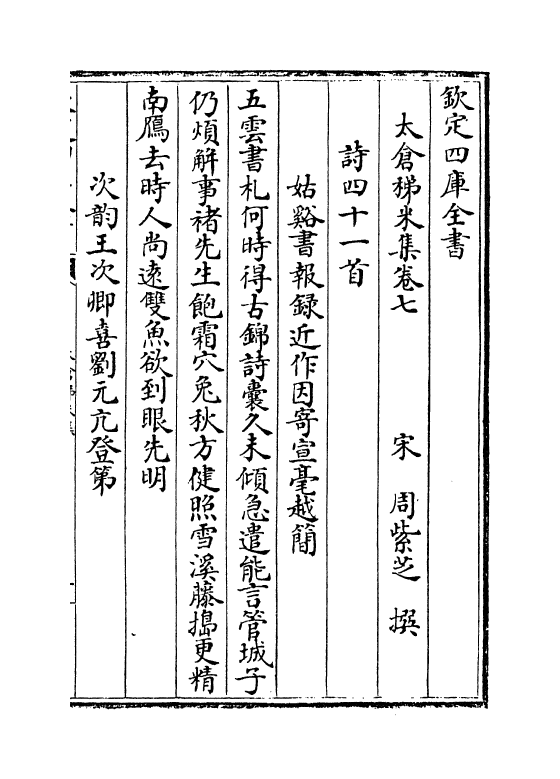 欽定四庫全書
太倉稊米集卷七　宋　周紫芝　撰
詩四十一首
姑谿書報録近作因寄宣毫越簡
五雲書札何時得古錦詩囊久未傾急遣能言管城子
仍煩解事褚先生飽霜穴兔秋方健照雪溪藤搗更精
南鴈去時人尚逺雙魚欲到眼先明
次韵王次卿喜劉元亢登第